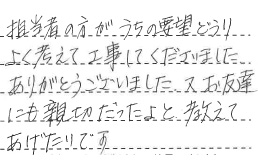 担当者の方がうちの要望どうり
よく考えて工事してくださいました
ありがとうございました又お友達
にも親切だったよと教えて
あげたいです